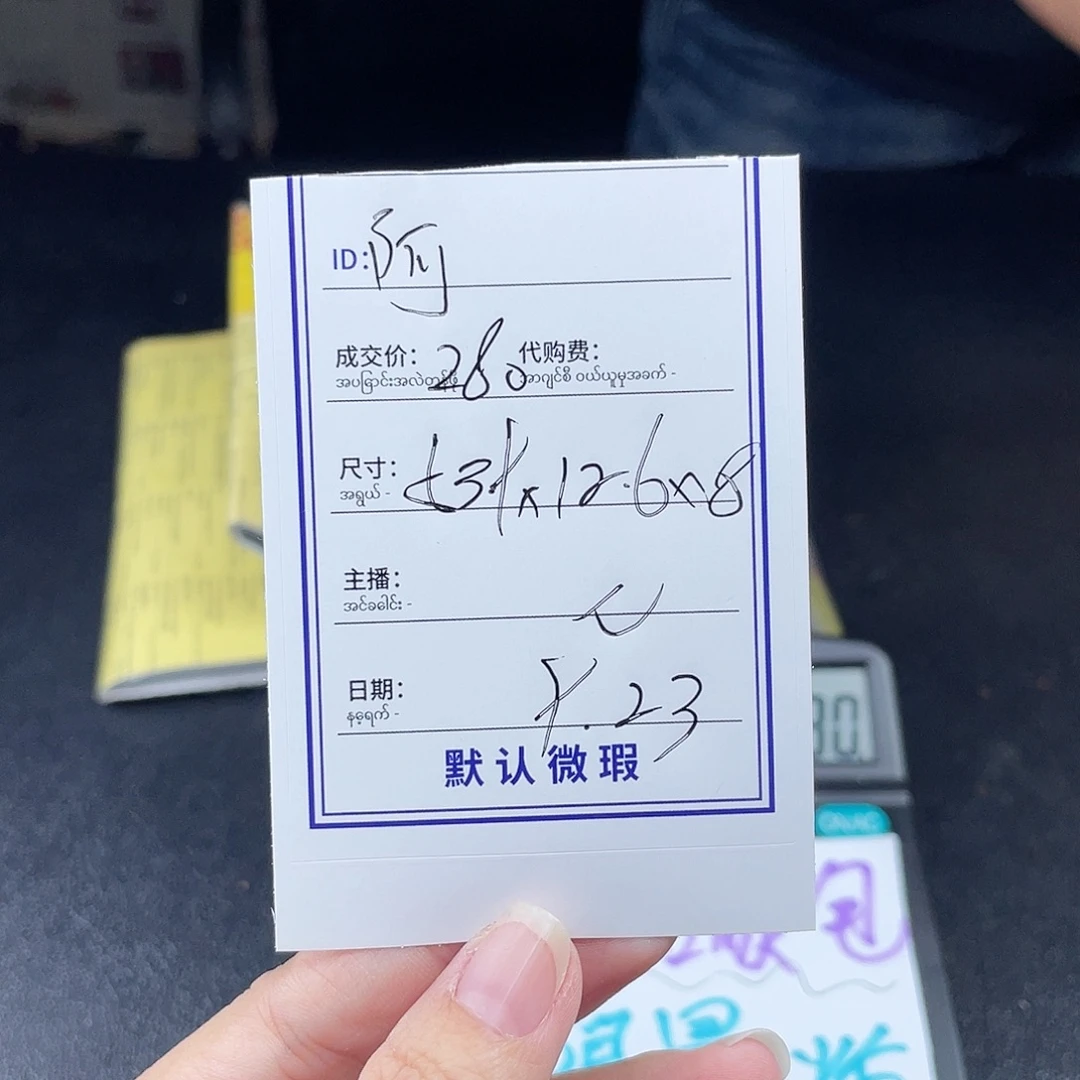 ID: 阿
成交价: 280 代购费:
အပြောင်းအလဲတန်ဖိုး အာဂျင်စီ ဝယ်ယူမှုအခက် -
尺寸: 53.8x12.6x8
အရွယ် -
主播:
အင်ခေါင်း -
日期: 8.23
နေ့ရက် -
默认微瑕
30
包